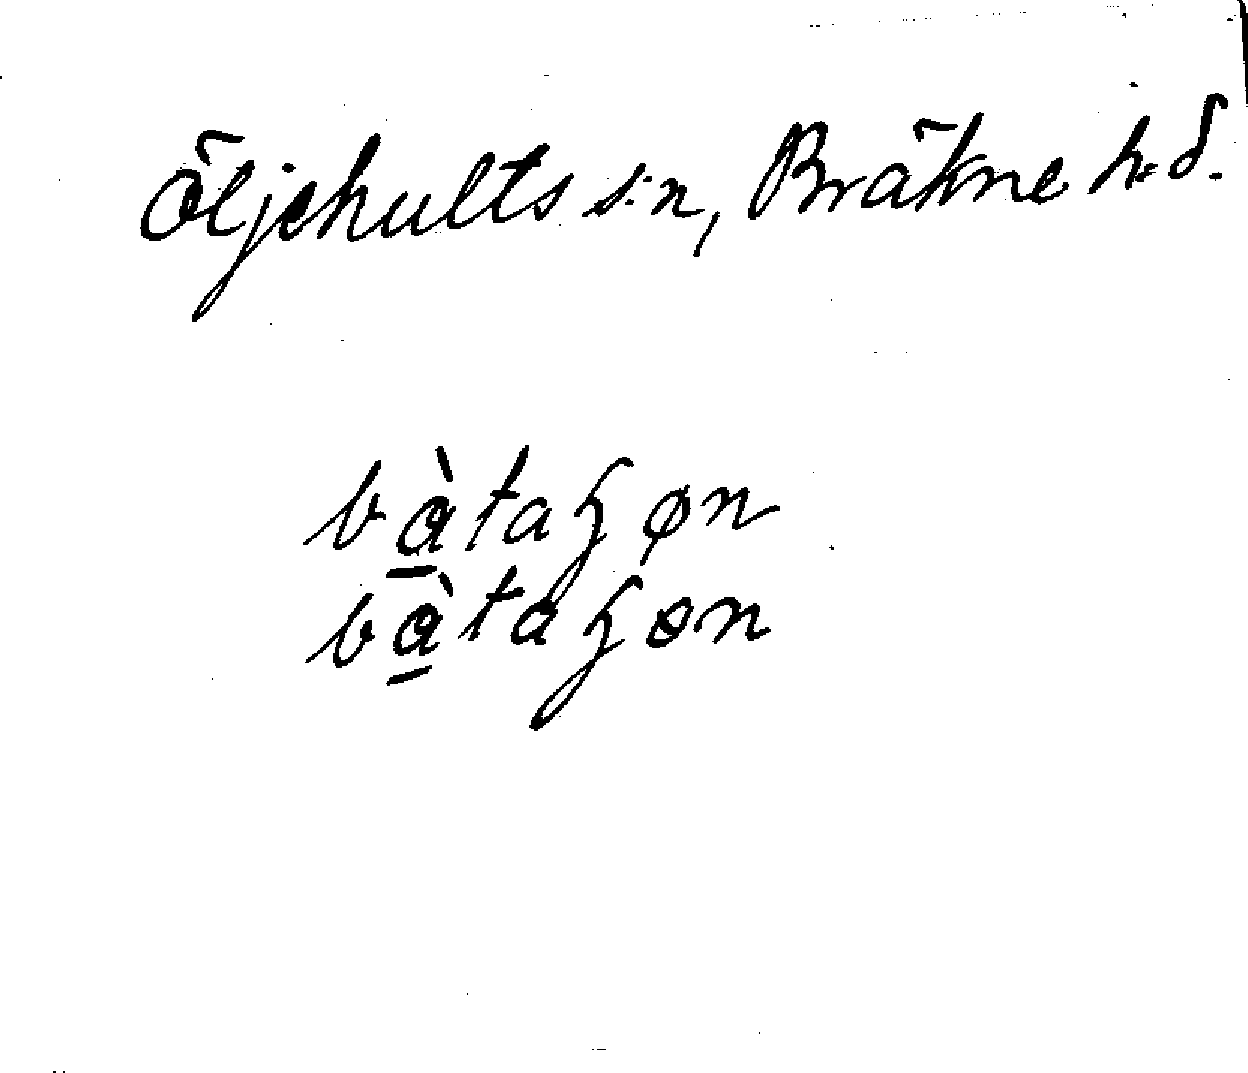 Öljehults s:n, Bräkne h:d.
bàtaꞕøn
bàtaꞕɵn